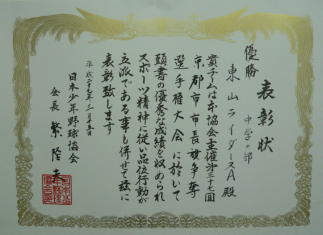 表彰状
中学の部
優勝
東山ライダースA殿
貴チームは本協会主催第三十七回
京都市市長旗争奪
選手権大会に於いて
頭書の優秀な成績を収められ
スポーツ精神に従い品位行動が
立派である事も併せて茲に
表彰致します
平成二十七年三月十五日
日本少年野球協会
会長 繁隆夫